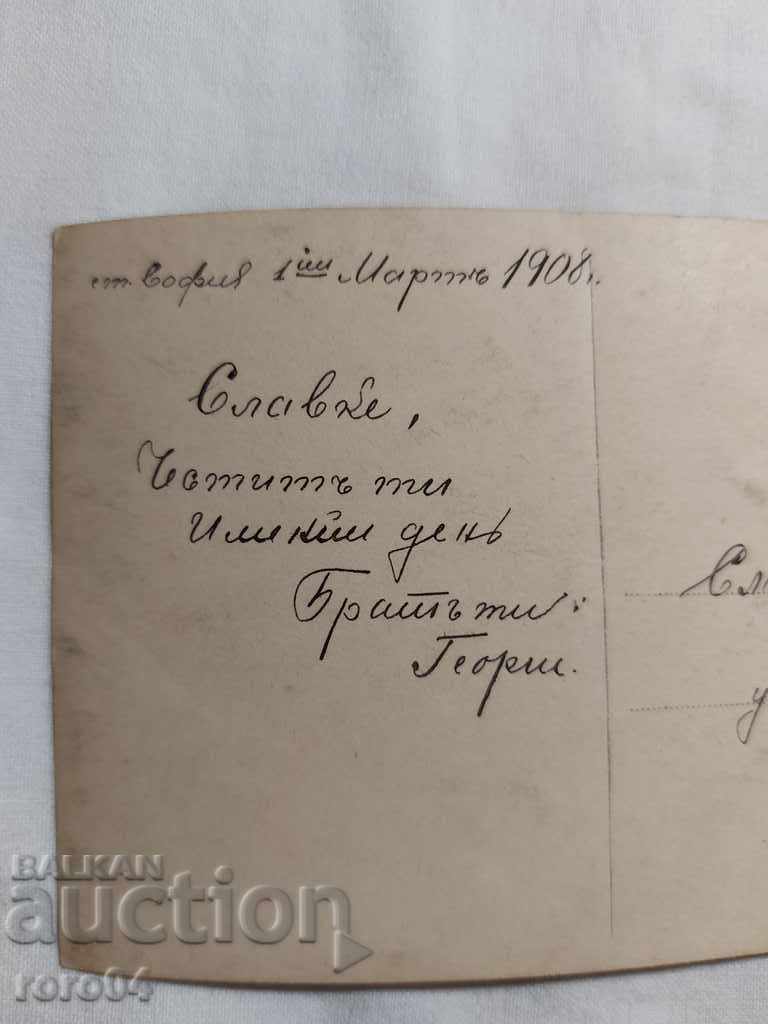 ст. София 1ий Мартъ 1908г.
Славке,
Честитъ ти
Именни день
Братъ ти:
Георги.
Сл
у
BALKAN
auction
roro04